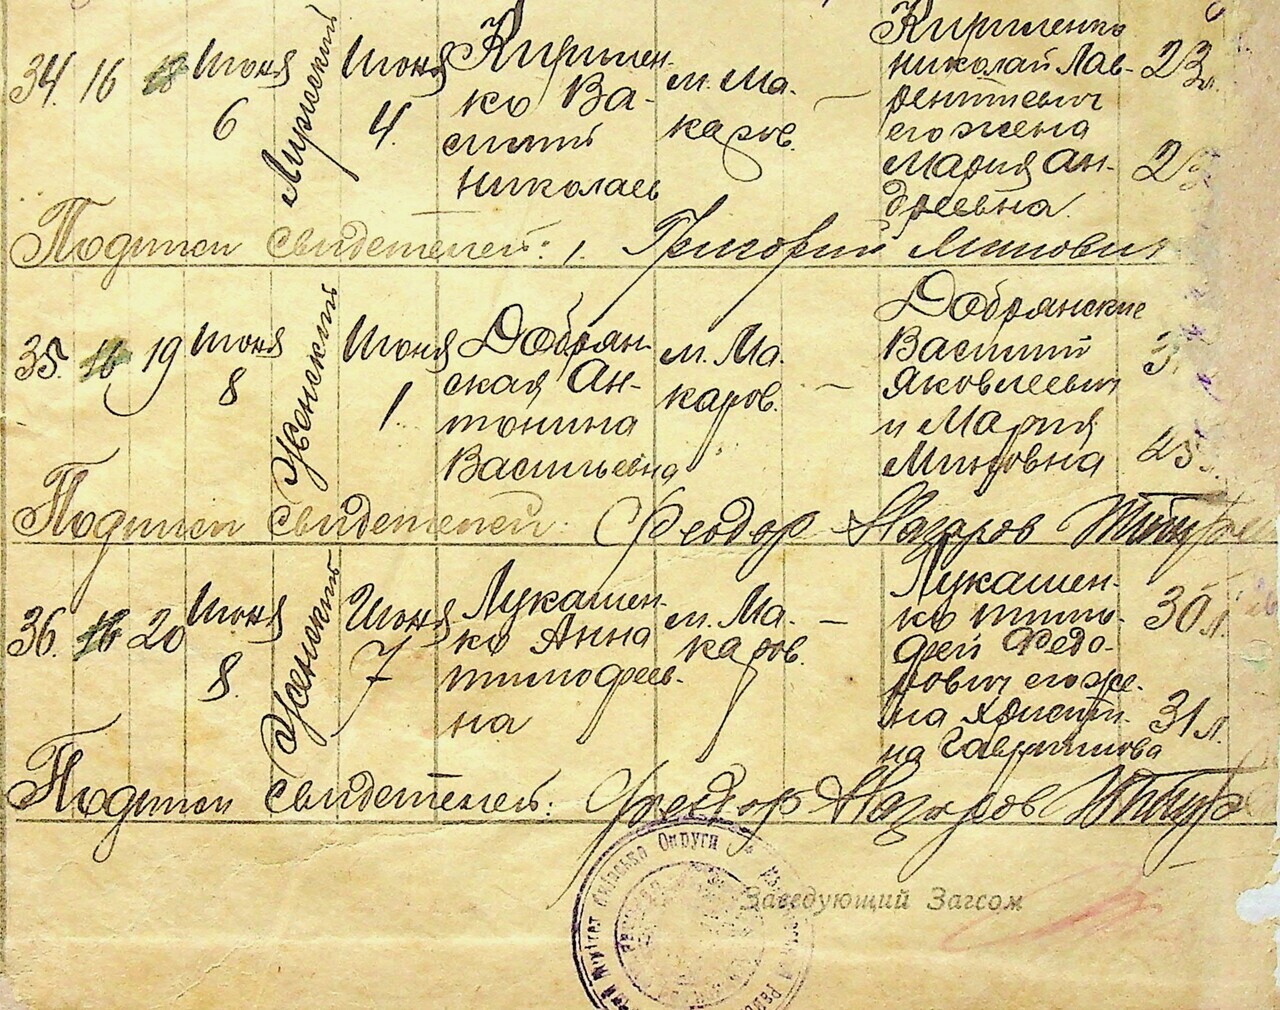 34. 16 18 Июня 6 Мужеский Июня 4. Кирилен-
ко Ва-
силий
Николаев
м. Ма-
каров.
—
Кириленко
Николай Лав-
рентиевич
его жена
Мария Ан-
дреевна.
23 л.
23
Подписи свидетелей: 1. Григорий
35. 16 19 Июня 8 Женский Июня 1. Добрян-
ская Ан-
тонина
Васильевна
м. Ма-
каров.
—
Добрянские
Василий
Яковлевич
и Мария
Мироновна
45
Подписи свидетелей: Феодор Назаров
36. 16 20 Июня 8. Женский Июня 7 Лукашен-
ко Анна
Тимофеев-
на
м. Ма-
каров.
—
Лукашен-
ко Тимо-
фей Федо-
рович его же-
на Христи-
на Гаврилова
30 л.
31 л.
Подписи свидетелей: Феодор Назаров
Округи
Заведующий Загсом